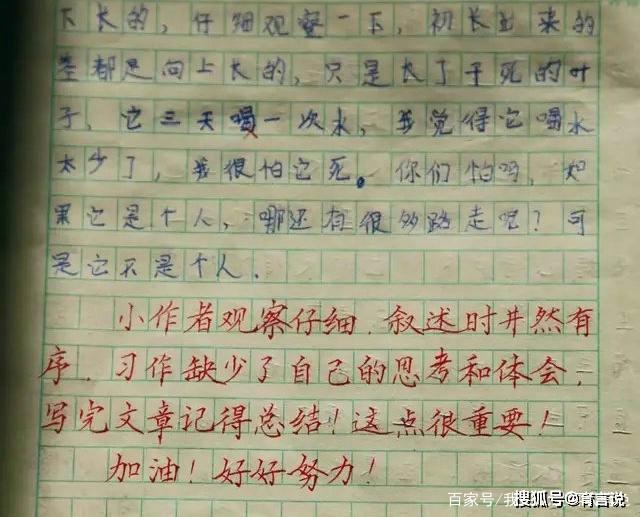 下长的，仔细观察一下，初长出来的
茎都是向上长的，只是长了干死的叶
子，它三天喝一次水，我觉得它喝水
太少了，我很怕它死。你们怕吗，如
果它是个人，哪还有很多路走呢？可
是它不是个人．
小作者观察仔细．叙述时井然有
序．习作缺少了自己的思考和体会，
写完文章记得总结！这点很重要！
加油！好好努力！
百家号/我
搜狐号@育言说